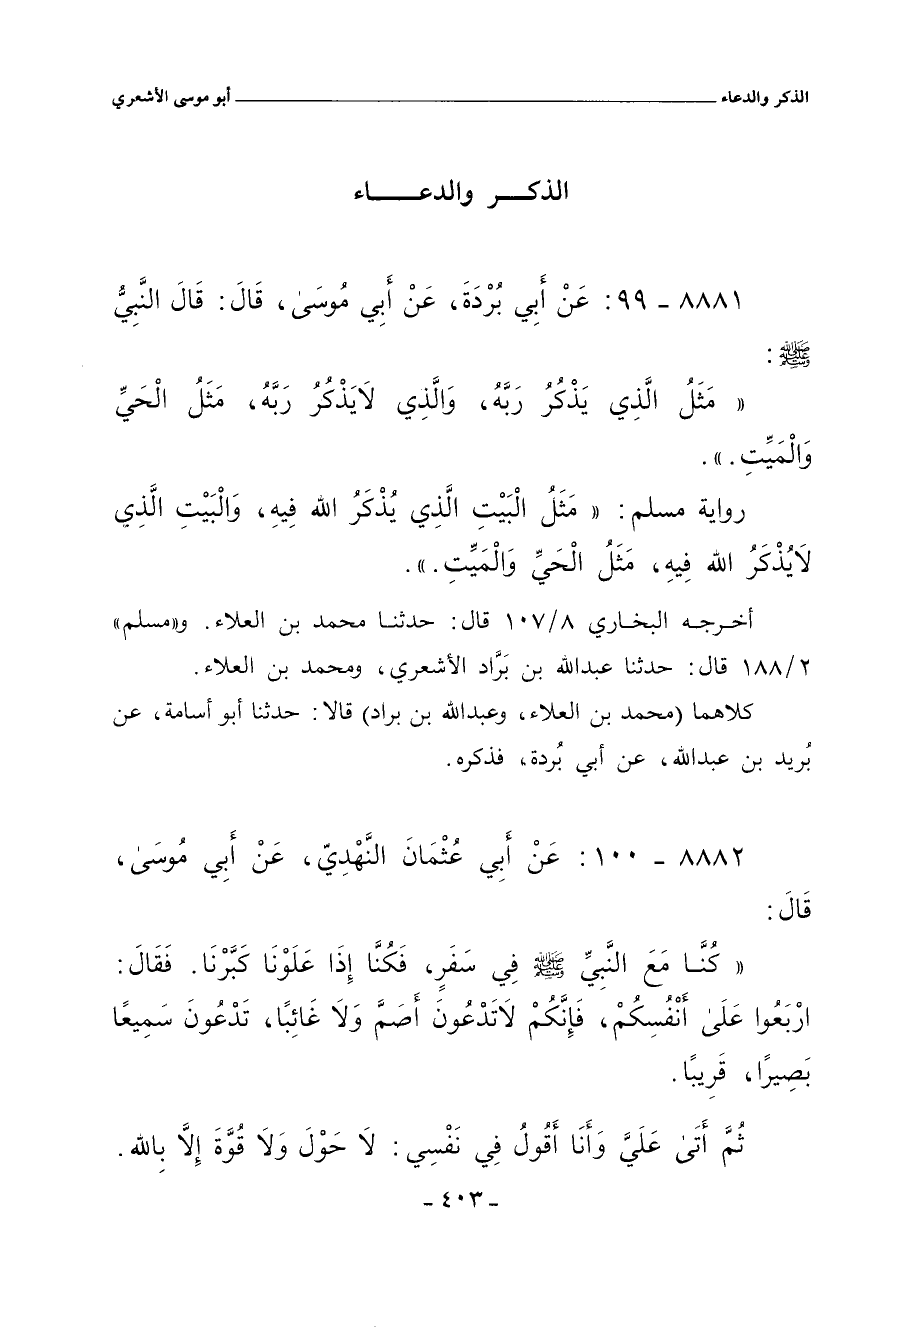 الذكر والدعاء ــــــــ أبو موسى الأشعري
الذكـــر والدعـــــاء
٨٨٨١ - ٩٩: عَنْ أَبِي بُرْدَةَ، عَنْ أَبِي مُوسَىٰ، قَالَ: قَالَ النَّبِيُّ
ﷺ:
« مَثَلُ الَّذِي يَذْكُرُ رَبَّهُ، وَالَّذِي لَايَذْكُرُ رَبَّهُ، مَثَلُ الْحَيِّ
وَالْمَيِّتِ.».
رواية مسلم: « مَثَلُ الْبَيْتِ الَّذِي يُذْكَرُ الله فِيهِ، وَالْبَيْتِ الَّذِي
لَايُذْكَرُ الله فِيهِ، مَثَلُ الْحَيِّ وَالْمَيِّتِ.».
أخرجه البخاري ١٠٧/٨ قال: حدثنا محمد بن العلاء. و«مسلم»
١٨٨/٢ قال: حدثنا عبدالله بن بَرَّاد الأشعري، ومحمد بن العلاء.
كلاهما (محمد بن العلاء، وعبدالله بن براد) قالا: حدثنا أبو أسامة، عن
بُريد بن عبدالله، عن أبي بُردة، فذكره.
٨٨٨٢ - ١٠٠: عَنْ أَبِي عُثْمَانَ النَّهْدِيّ، عَنْ أَبِي مُوسَىٰ،
قَالَ:
« كُنَّا مَعَ النَّبِيِّ ﷺ فِي سَفَرٍ، فَكُنَّا إِذَا عَلَوْنَا كَبَّرْنَا. فَقَالَ:
ارْبَعُوا عَلَىٰ أَنْفُسِكُمْ، فَإِنَّكُمْ لَاتَدْعُونَ أَصَمَّ وَلَا غَائِبًا، تَدْعُونَ سَمِيعًا
بَصِيرًا، قَرِيبًا.
ثُمَّ أَتَىٰ عَلَيَّ وَأَنَا أَقُولُ فِي نَفْسِي: لَا حَوْلَ وَلَا قُوَّةَ إِلَّا بِالله.
- ٤٠٣ -